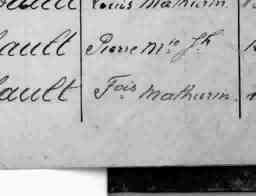 Louis Mathurin
ault Pierre Mie Jh
ault Fois Mathurin